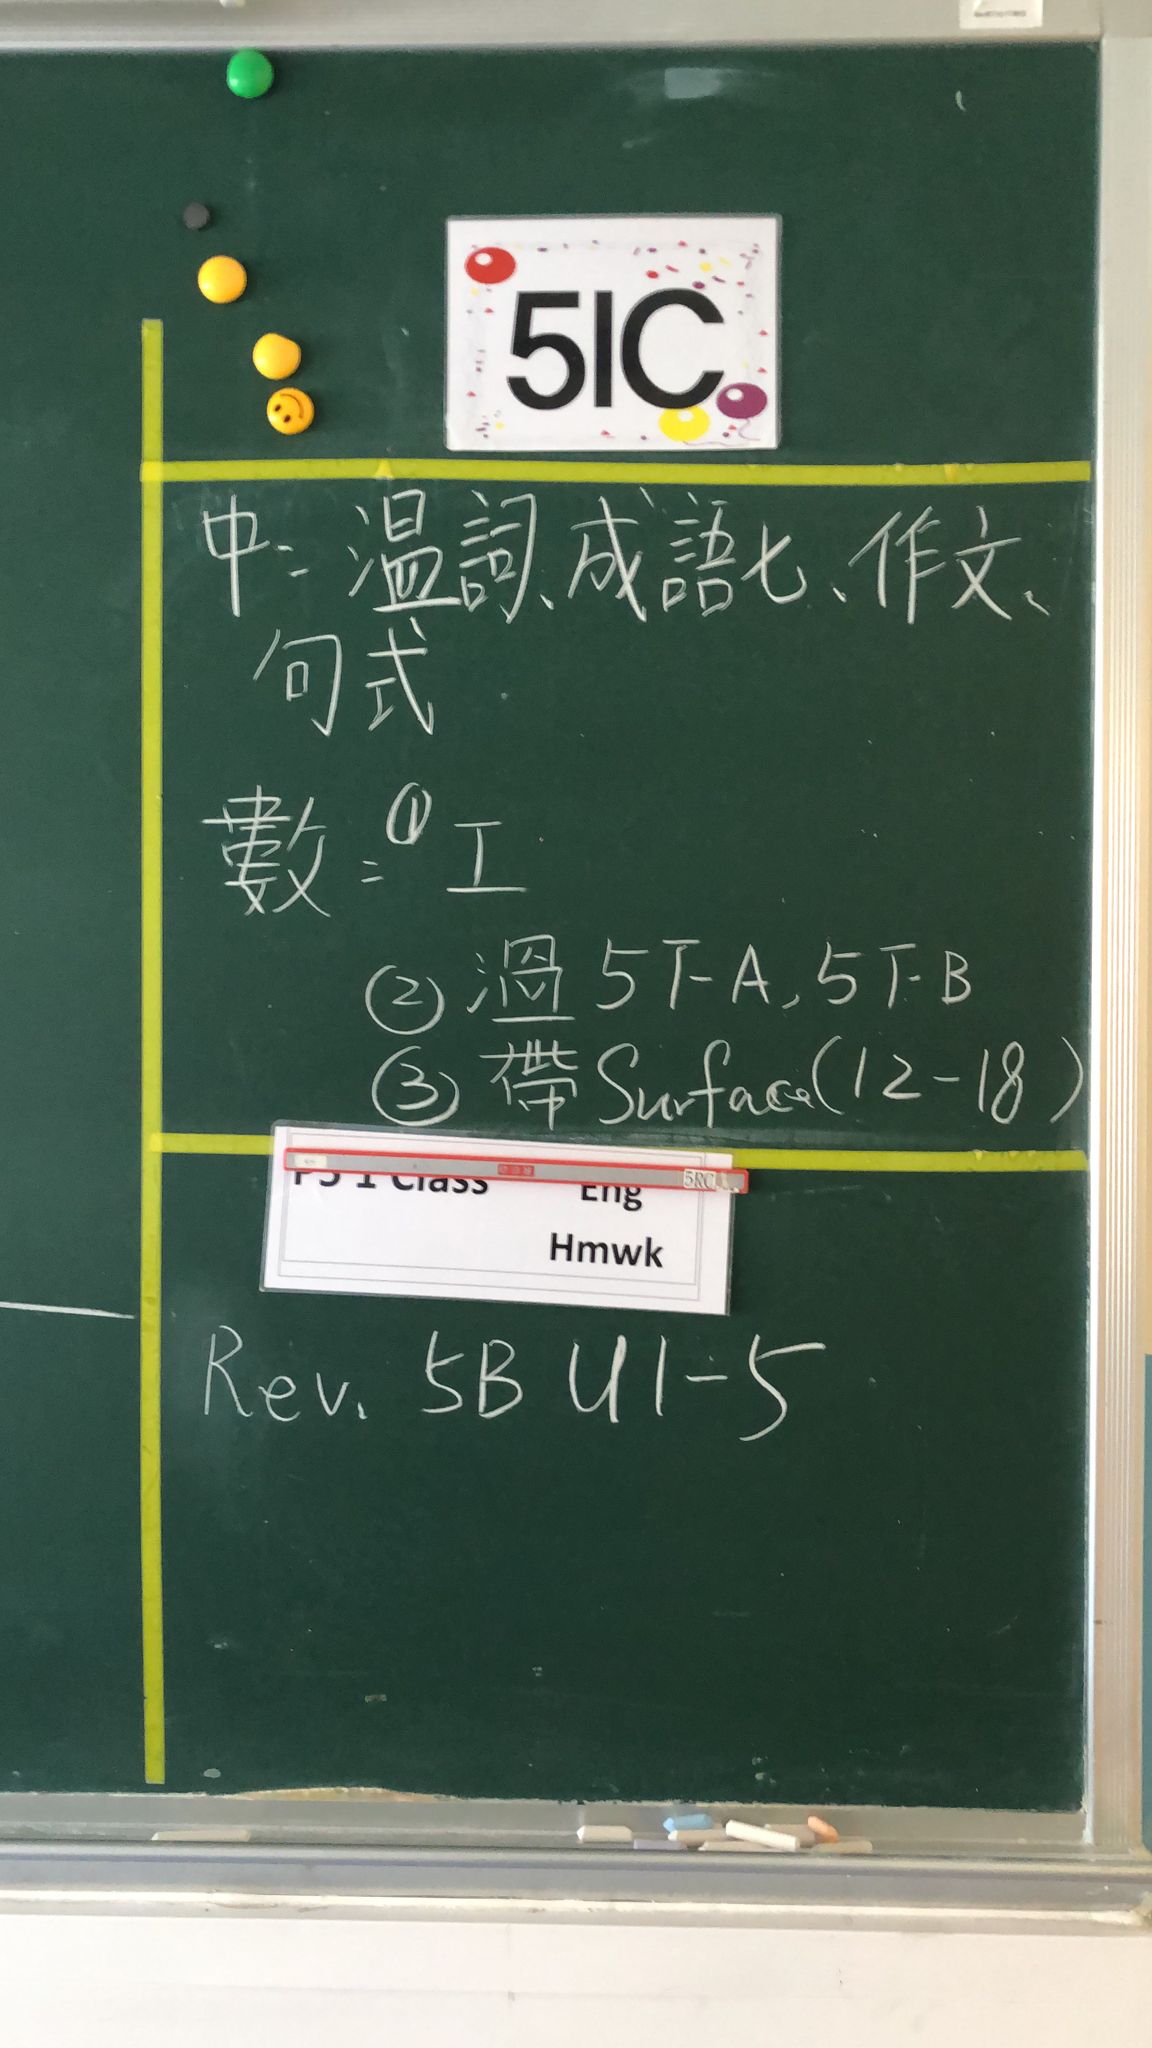 5IC
中: 温詞、成語七、作文、
句式
數: ① 工
② 溫 5T-A, 5T-B
③ 帶 Surface (12-18)
P5 1 Class Eng
5RC
Hmwk
Rev. 5B U1-5